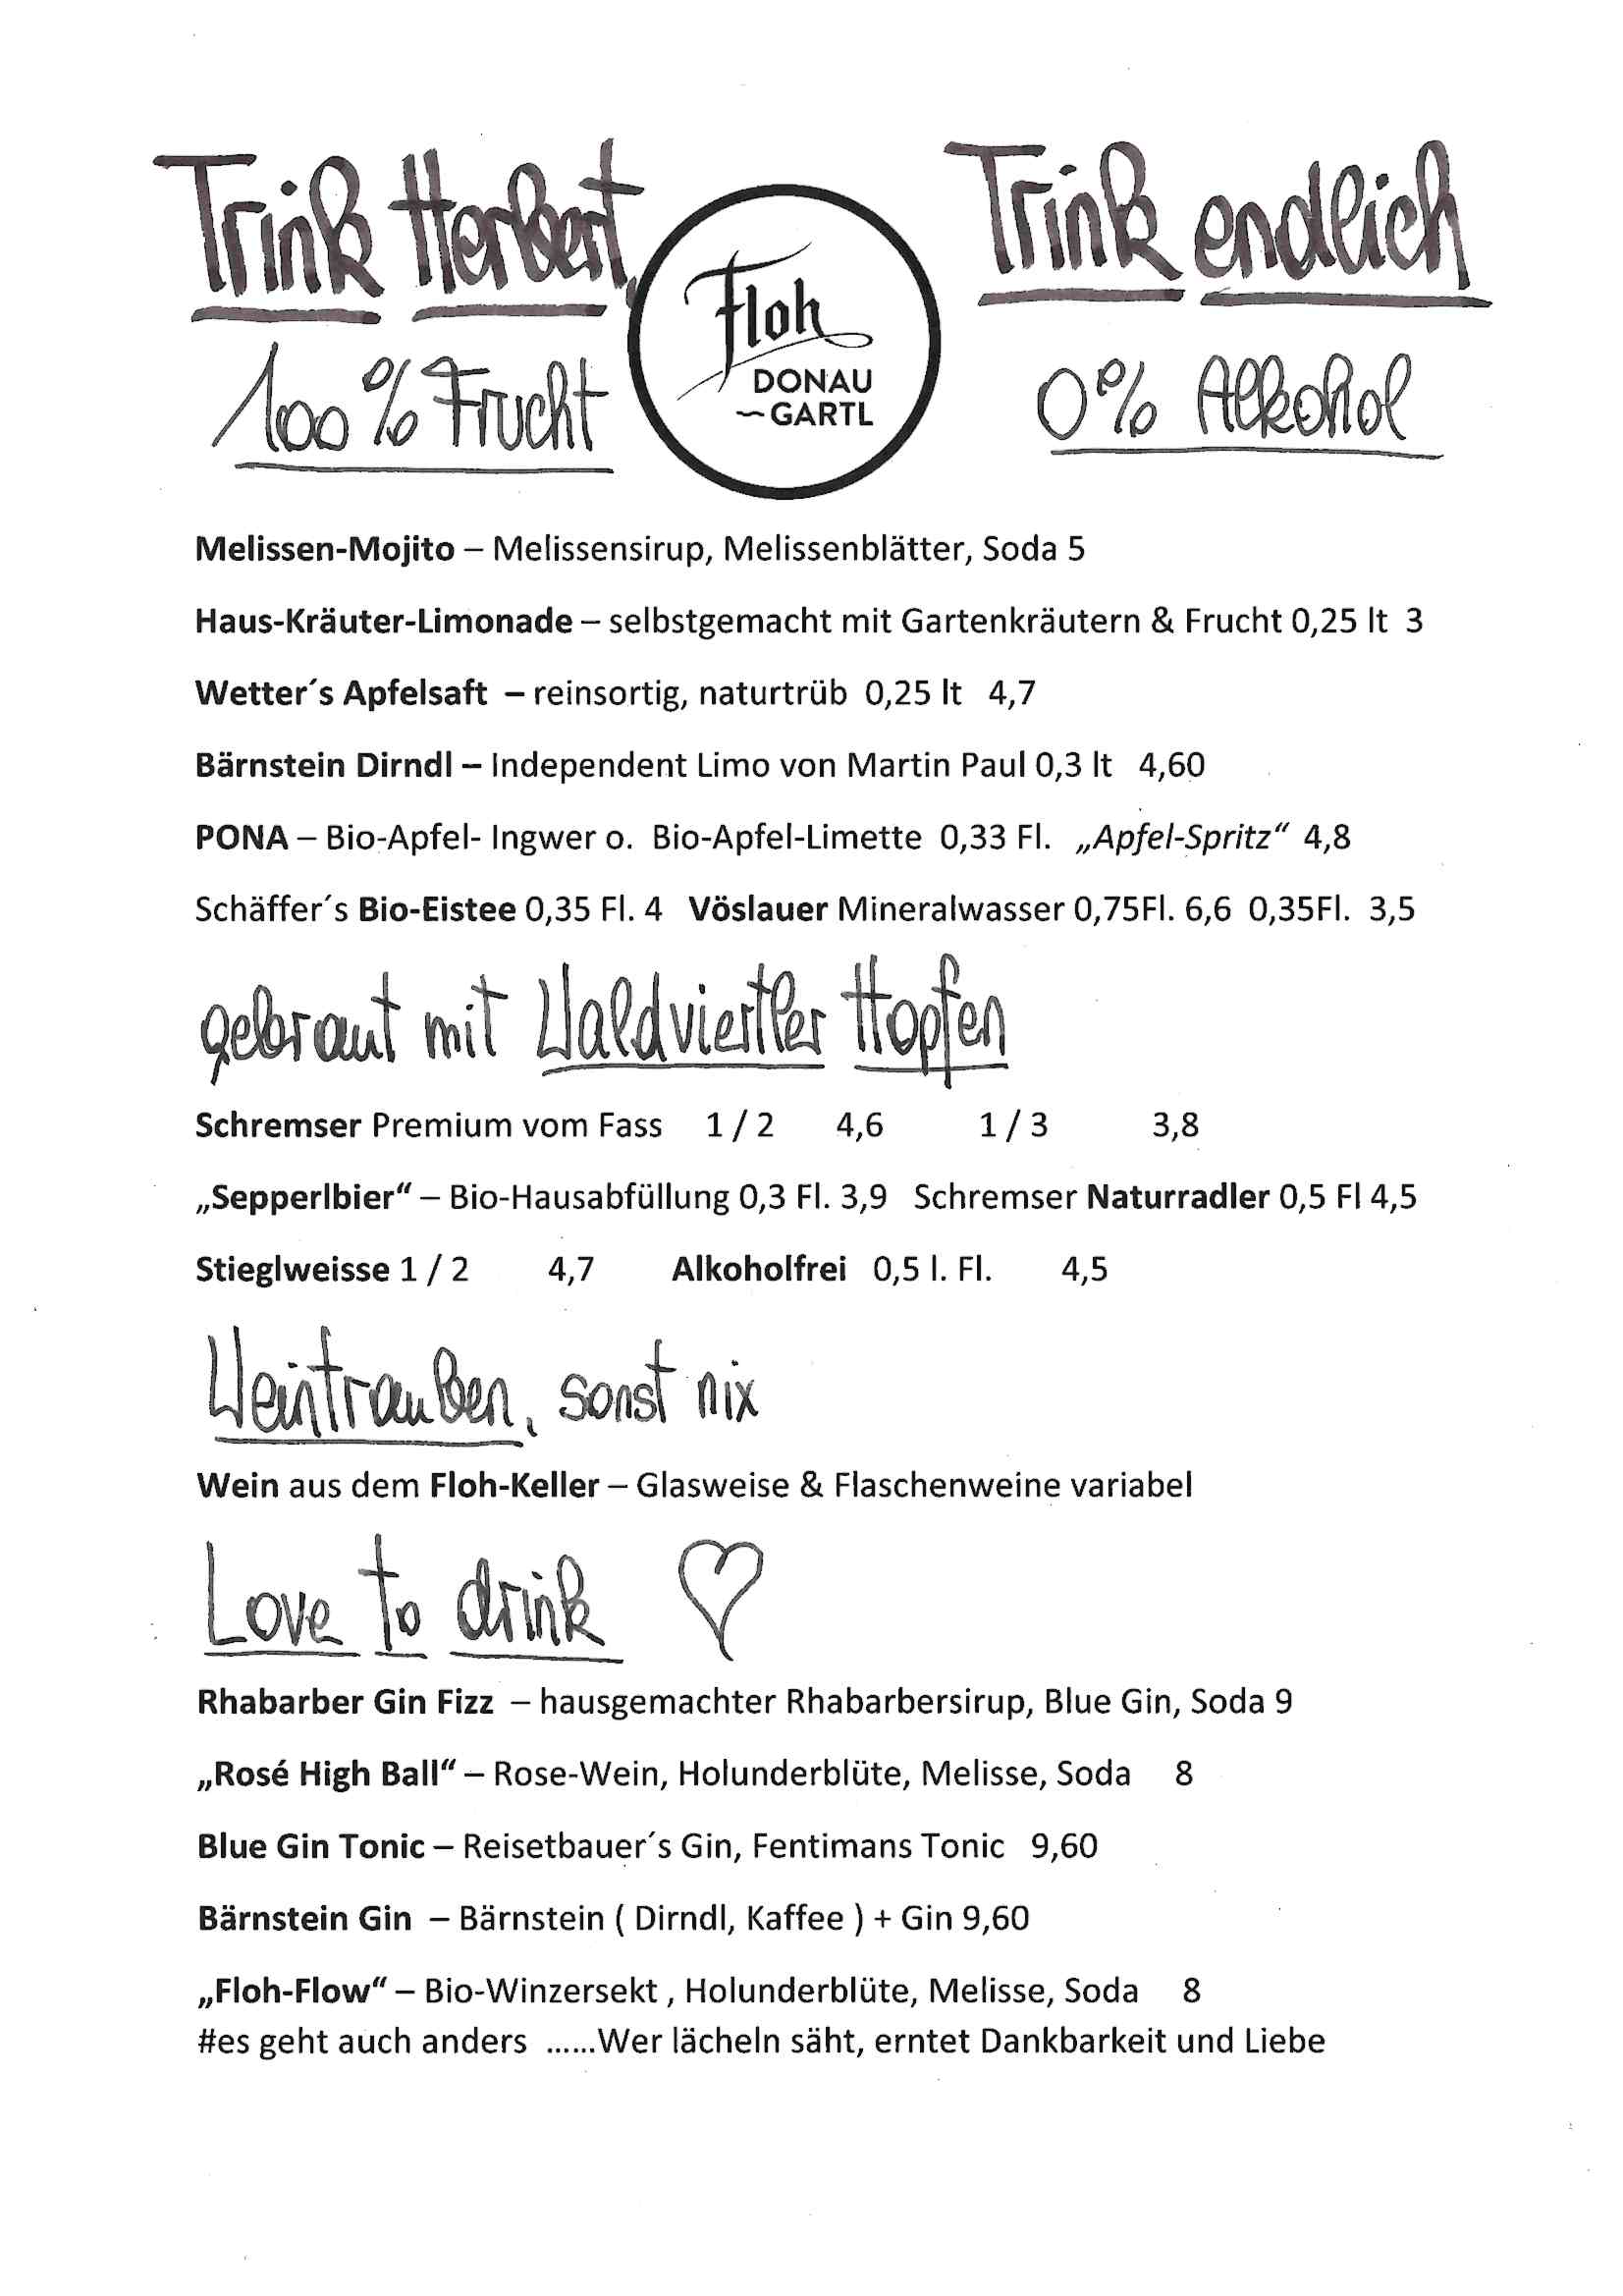 Trink Herbert, Trink endlich
Floh
DONAU
~GARTL
100% Frucht 0% Alkohol
Melissen-Mojito – Melissensirup, Melissenblätter, Soda 5
Haus-Kräuter-Limonade – selbstgemacht mit Gartenkräutern & Frucht 0,25 lt 3
Wetter´s Apfelsaft – reinsortig, naturtrüb 0,25 lt 4,7
Bärnstein Dirndl – Independent Limo von Martin Paul 0,3 lt 4,60
PONA – Bio-Apfel- Ingwer o. Bio-Apfel-Limette 0,33 Fl. „Apfel-Spritz“ 4,8
Schäffer´s Bio-Eistee 0,35 Fl. 4 Vöslauer Mineralwasser 0,75Fl. 6,6 0,35Fl. 3,5
gebraut mit Waldviertler Hopfen
Schremser Premium vom Fass 1 / 2 4,6 1 / 3 3,8
„Sepperlbier“ – Bio-Hausabfüllung 0,3 Fl. 3,9 Schremser Naturradler 0,5 Fl 4,5
Stieglweisse 1 / 2 4,7 Alkoholfrei 0,5 l. Fl. 4,5
Weintrauben, sonst nix
Wein aus dem Floh-Keller – Glasweise & Flaschenweine variabel
Love to drink ♡
Rhabarber Gin Fizz – hausgemachter Rhabarbersirup, Blue Gin, Soda 9
„Rosé High Ball“ – Rose-Wein, Holunderblüte, Melisse, Soda 8
Blue Gin Tonic – Reisetbauer´s Gin, Fentimans Tonic 9,60
Bärnstein Gin – Bärnstein ( Dirndl, Kaffee ) + Gin 9,60
„Floh-Flow“ – Bio-Winzersekt , Holunderblüte, Melisse, Soda 8
#es geht auch anders ......Wer lächeln säht, erntet Dankbarkeit und Liebe